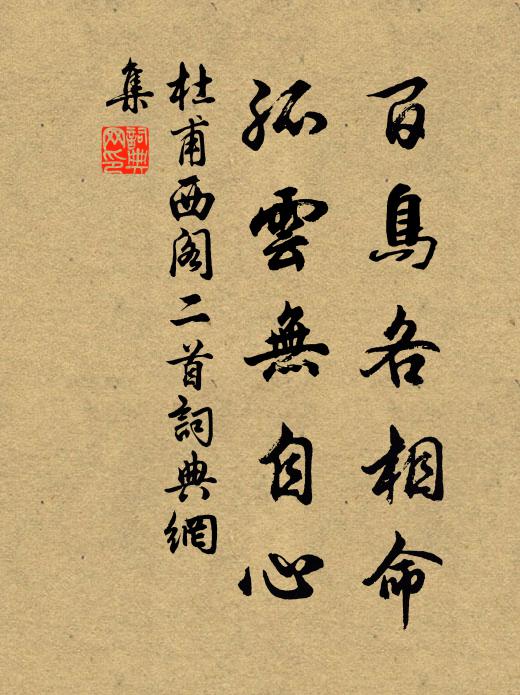 百鳥各相命
孤雲無自心
杜甫西閣二首詞典網
集
詞典
网印